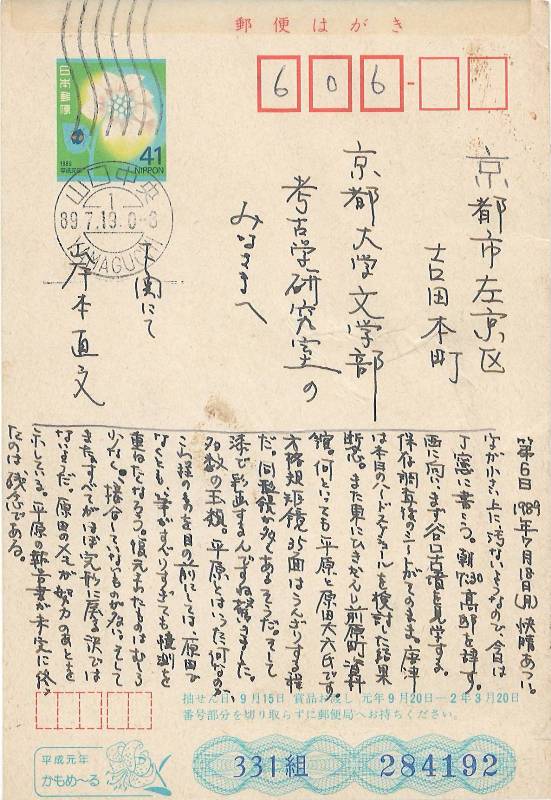 郵便はがき
日本郵便
1989
平成元年
41
NIPPON
山口中央
1
89.7.19.0-6
YAMAGUCHI
606
京都市左京区
吉田本町
京都大学文学部
考古学研究室の
みなさまへ
下関にて
岸本直文
第6日 1989年7月18日(月)快晴あつい。
字が小さい上に汚ないようなので、今日は
丁寧に書こう。朝 高邸を辞す。
西に向い、まず谷口古墳を見学する。
保存調査後のシートがそのまま。唐津
は本日のハードスケジュールを検討した結果
断念。また東にひきかえし前原町の資料
館。何といっても平原と原田大六氏です。
方格規矩鏡35面はうんざりする程
だ。同型鏡が多くてあるそうだ。そして
漆で彩画するんですね。驚きました。
多数の玉類。平原とはいった何なのか
これ程のものを目の前にしては、原田で
なくとも筆がすべりすぎても憶測を
重ねたくなろう。復元されたものはむしろ
少なく、接合していないものが多い。そして
またすべてがほぼ完形に戻る訳では
ないようだ。原田のメモが努力のあとを
示している。平原の報告書が未完に終っ
たのは、残念である。
抽せん日 9月15日 賞品お渡し 元年9月20日―2年3月20日
番号部分を切り取らずに郵便局へお持ちください。
平成元年
かもめ〜る
331組 284192